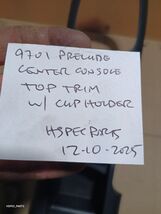 9701 PRELUDE
CENTER CONSOLE
TOP TRIM
W/ CUP HOLDER
HSPEC PARTS
12-10-2025
HSPEC_PARTS